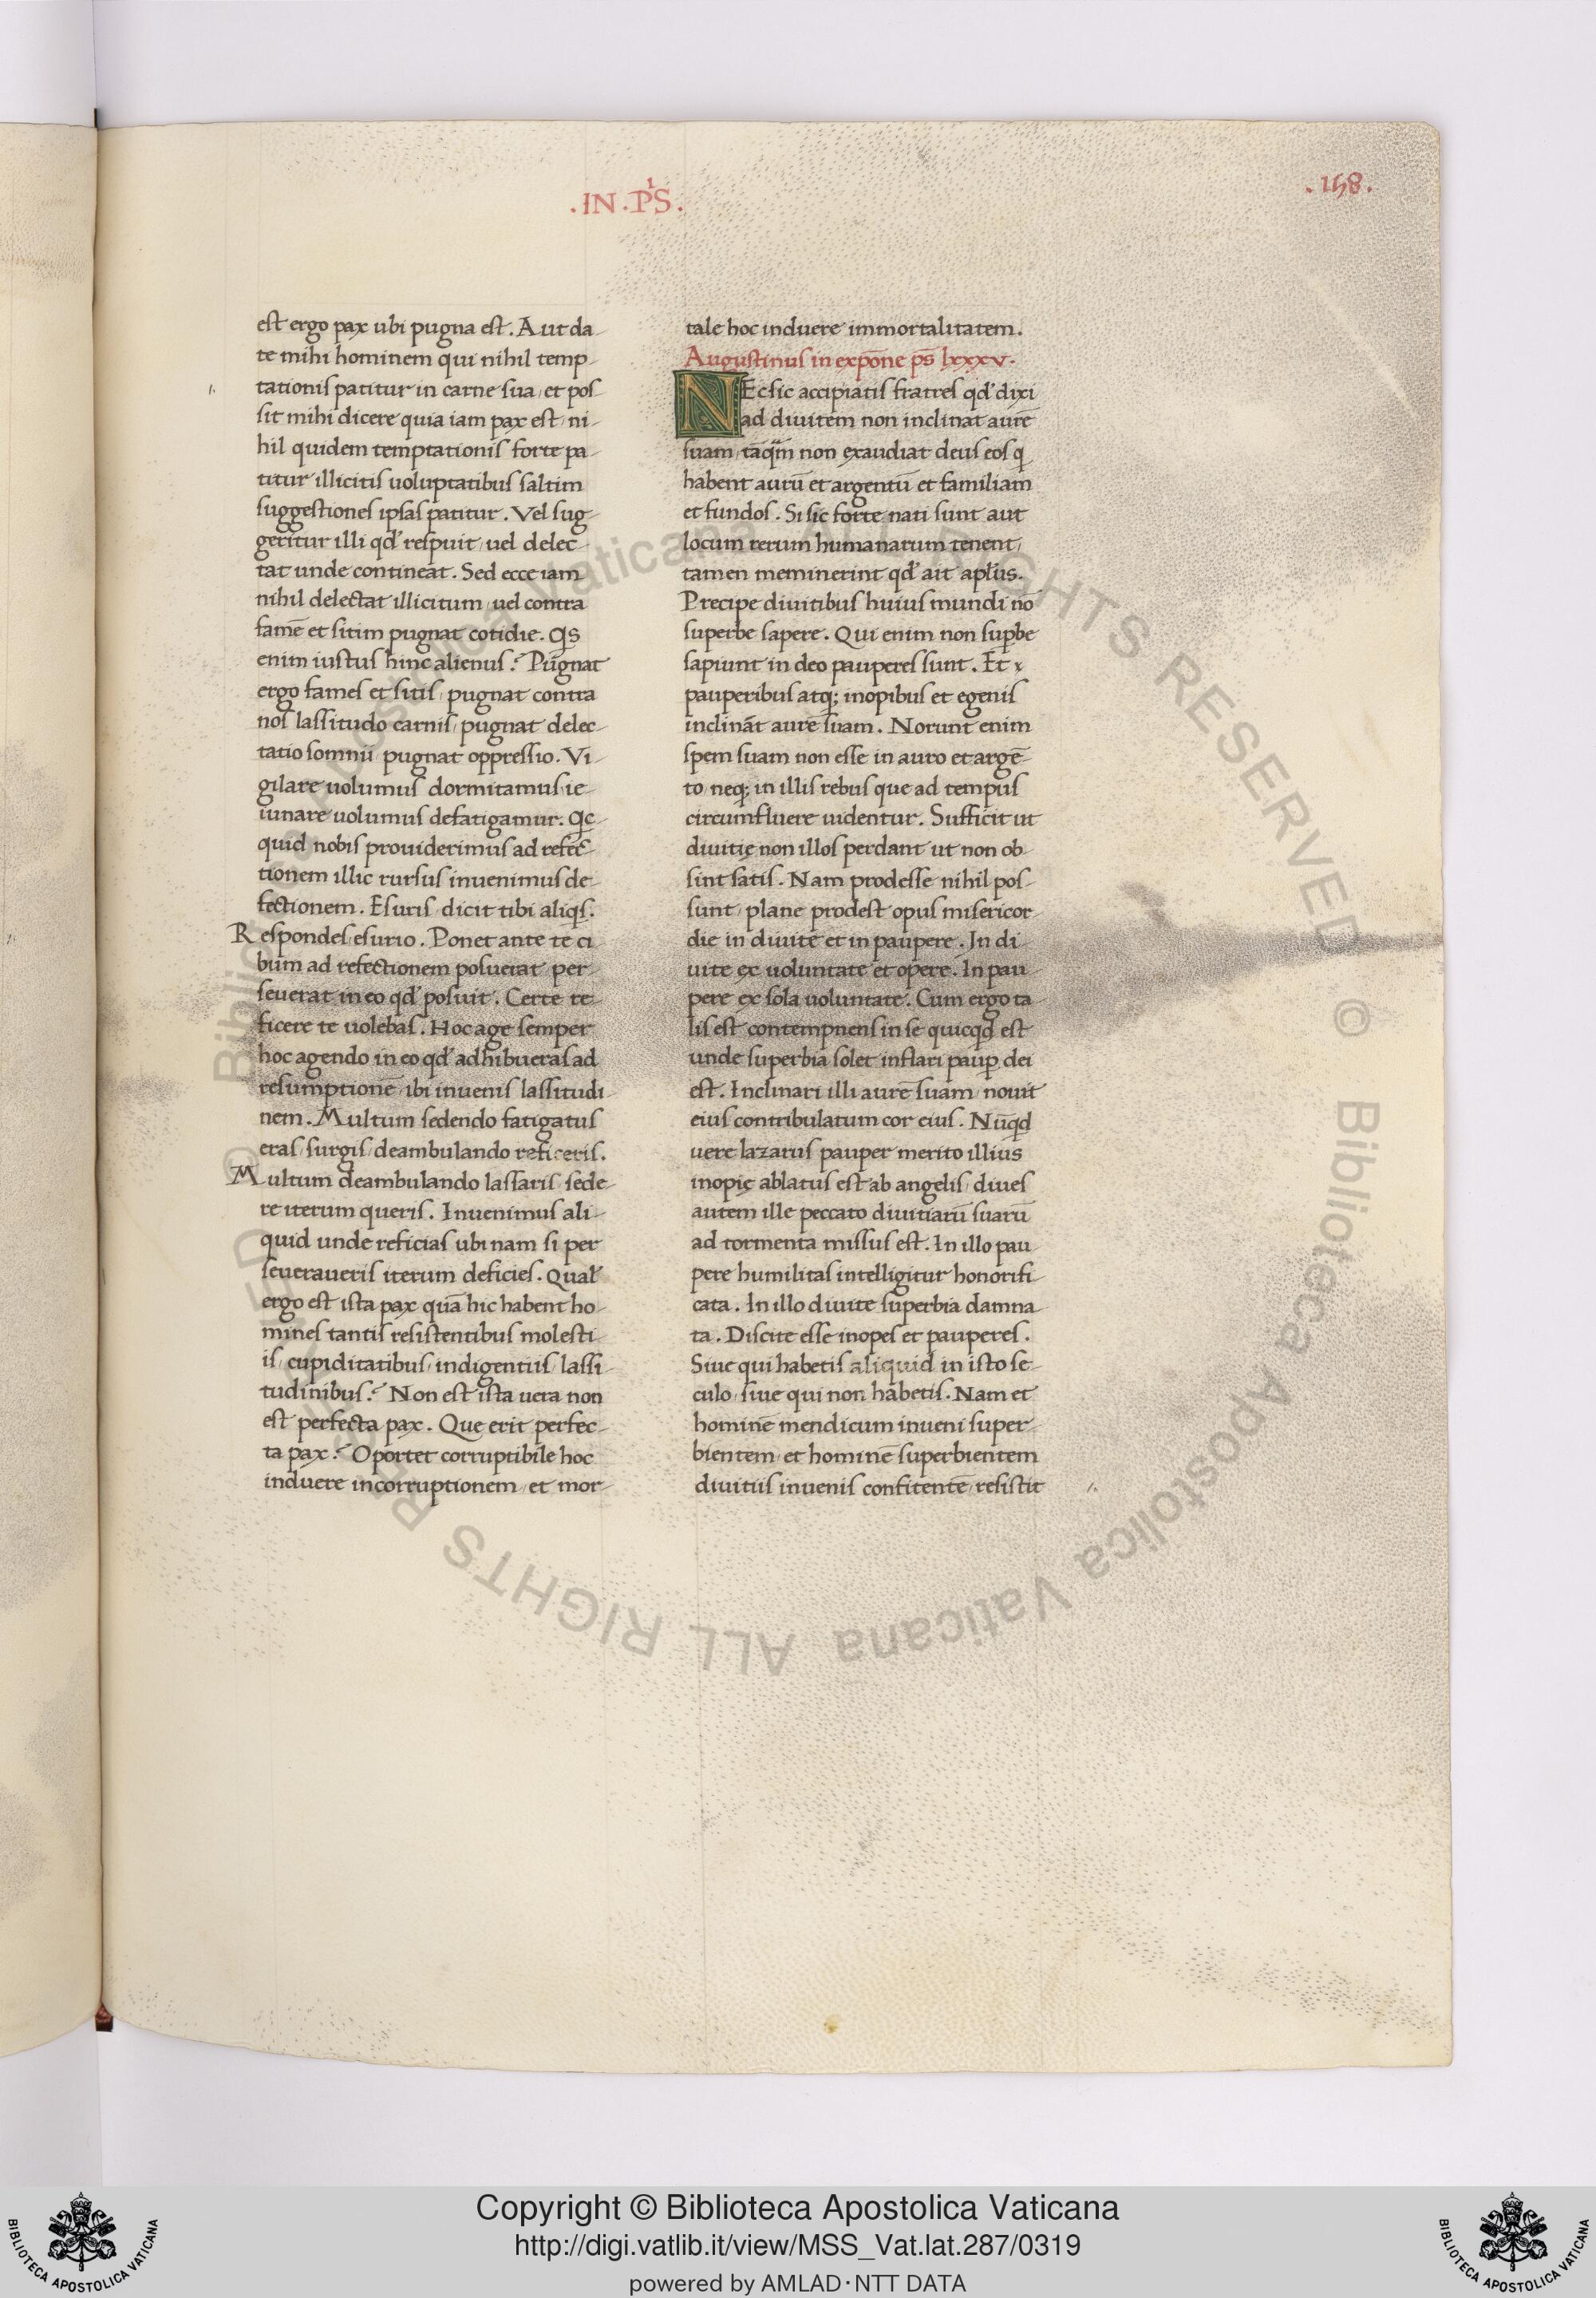 .IN.PˡS.
.158.
est ergo pax ubi pugna est. Aut da-
te mihi hominem qui nihil temp-
tationis patitur in carne sua, et pos
sit mihi dicere quia iam pax est, ni-
hil quidem temptationis forte pa-
titur illicitis uoluptatibus saltim
suggestiones ipsas patitur. Vel sug-
geritur illi qd' respuit, uel delec-
tat unde contineat. Sed ecce iam
nihil delectat illicitum, uel contra
famē et sitim pugnat cotidie. Qs
enim iustus hinc alienus? Pugnat
ergo fames et sitis, pugnat contra
nos lassitudo carnis, pugnat delec-
tatio somnii, pugnat oppressio. Vi-
gilare uolumus dormitamus, ie-
iunare uolumus defatigamur. Qc-
quid nobis prouiderimus ad refec-
tionem illic rursus inuenimus de-
fectionem. Esuris, dicit tibi aliqs.
Respondes esurio. Ponet ante te ci
bum ad refectionem posuerat, per-
seuerat in eo qd' posuit. Certe re-
ficere te uolebas. Hoc age semper
hoc agendo in eo qd' adhibueras ad
resumptionē, ibi inuenis lassitudi-
nem. Multum sedendo fatigatus
eras, surgis, deambulando reficeris.
Multum deambulando lassaris, sede-
re iterum queris. Inuenimus ali-
quid unde reficias ubi nam si per
seueraueris iterum deficies. Qual'
ergo est ista pax quā hic habent ho-
mines tantis resistentibus molesti-
is, cupiditatibus, indigentiis, lassi-
tudinibus? Non est ista uera non
est perfecta pax. Que erit perfec-
ta pax? Oportet corruptibile hoc
induere incorruptionem, et mor-
tale hoc induere immortalitatem.
Augustinus in expōne ps̄ lxxxv.
NEc sic accipiatis fratres qd' dixi
ad diuitem non inclinat aurē
suam, tāqm̄ non exaudiat deus eos q
habent aurū et argentū et familiam
et fundos. Si sic forte nati sunt aut
locum rerum humanarum tenent,
tamen meminerint qd' ait apl'us.
Precipe diuitibus huius mundi nō
superbe sapere. Qui enim non sup̱be
sapiunt in deo pauperes sunt. Et
pauperibus atq; inopibus et egenis
inclināt aurē suam. Norunt enim
spem suam non esse in auro et argē-
to, neq; in illis rebus que ad tempus
circumfluere uidentur. Sufficit ut
diuitię non illos perdant ut non ob-
sint satis. Nam prodesse nihil pos-
sunt, plane prodest opus misericor-
die in diuite et in paupere. In di-
uite ex uoluntate et opere. In pau-
pere ex sola uoluntate. Cum ergo ta-
lis est contempnens in se quicqd est
unde superbia solet inflari paup̱ dei
est. Inclinari illi aurē suam, nouit
eius contribulatum cor eius. Nūqd
uere lazarus pauper merito illius
inopię ablatus est ab angelis, diues
autem ille peccato diuitiarū suarū
ad tormenta missus est. In illo pau-
pere humilitas intelligitur honorifi-
cata. In illo diuite superbia damna-
ta. Discite esse inopes et pauperes.
Siue qui habetis aliquid in isto se-
culo, siue qui non habetis. Nam et
hominē mendicum inueni super-
bientem, et hominē superbientem
diuitiis inuenis confitentē, resistit
Copyright © Biblioteca Apostolica Vaticana
http://digi.vatlib.it/view/MSS_Vat.lat.287/0319
powered by AMLAD·NTT DATA
BIBLIOTECA APOSTOLICA VATICANA
BIBLIOTECA APOSTOLICA VATICANA
© Biblioteca Apostolica Vaticana ALL RIGHTS RESERVED
© Biblioteca Apostolica Vaticana ALL RIGHTS RESERVED